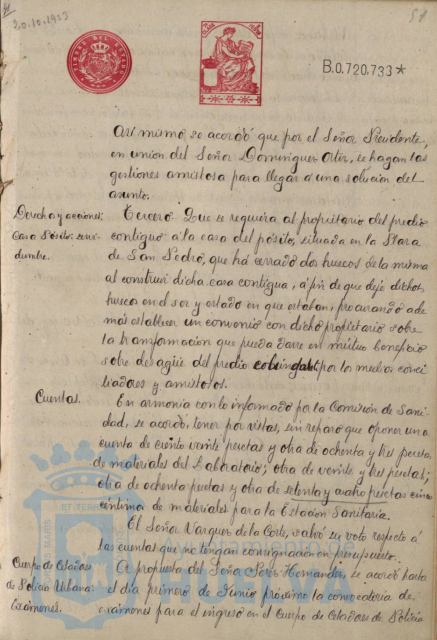 20.10.1923
51
TIMBRE DEL ESTADO
B.0.720.733*
Asi mismo se acordó que por el Señor Presidente,
en union del Señor Dominguez Ortiz, se hagan las
gestiones amistosas para llegar á una solucion del
asunto.
Derechos y acciones:
Casa Pósito: servi-
dumbre.
Tercero Que se requiera al propietario del predio
contiguo á la casa del pósito, situada en la Plaza
de San Pedro, que há cerrado dos huecos de la misma
al construir dicha casa contigua, á fin de que deje dichos
huecos en el ser y estado en que estaban, procurando ade
más establecer un convenio con dicho propietario sobre
la transformacion que pueda darse en mútuo beneficio
sobre desagüe del predio colindante por los medios conci
liadores y amistosos.
Cuentas.
En armonia con lo informado por la Comisión de Sani
dad, se acordó tener por vistas, sin reparo que oponer una
cuenta de ciento veinte pesetas y otra de ochenta y tres pesetas
de materiales del Laboratorio; otra de veinte y tres pesetas;
otra de ochenta pesetas y otra de setenta y cuatro pesetas cinco
céntimos de materiales para la Estación Sanitaria.
El Señor Vazquez de la Corte, salvó su voto respecto á
las cuentas que no tengan consignación en presupuesto.
Cuerpo de Celadores
de Policia Urbana:
Exámenes.
A propuesta del Señor Perez Hernandez, se acordó hasta
el dia primero de Junio próximo la convocatoria de
exámenes para el ingreso en el Cuerpo de Celadores de Policia